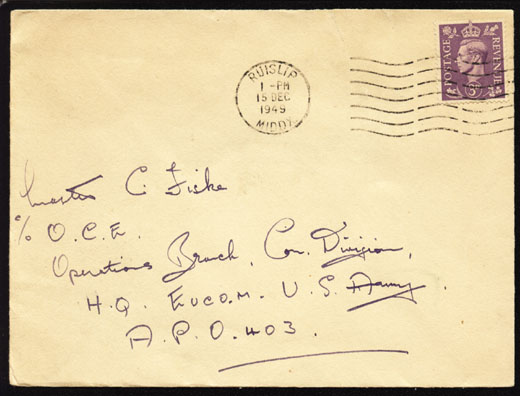 POSTAGE REVENUE
3D
RUISLIP
1 - PM
15 DEC
1949
MIDDX
C. Ficke
c/o O.C.E.
Operations Branch, Con. Division,
H.Q. EUCOM. U.S. Army.
A.P.O. 403.